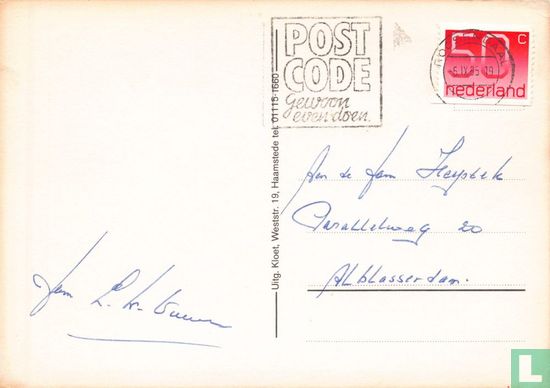 POST
CODE
Gewoon
even doen.
50 c
nederland
Uitg. Kloet, Weststr. 19, Haamstede tel. 01115-1660
Aan de fam
Parallelweg 20
Alblasserdam.
fam L.
catawiki